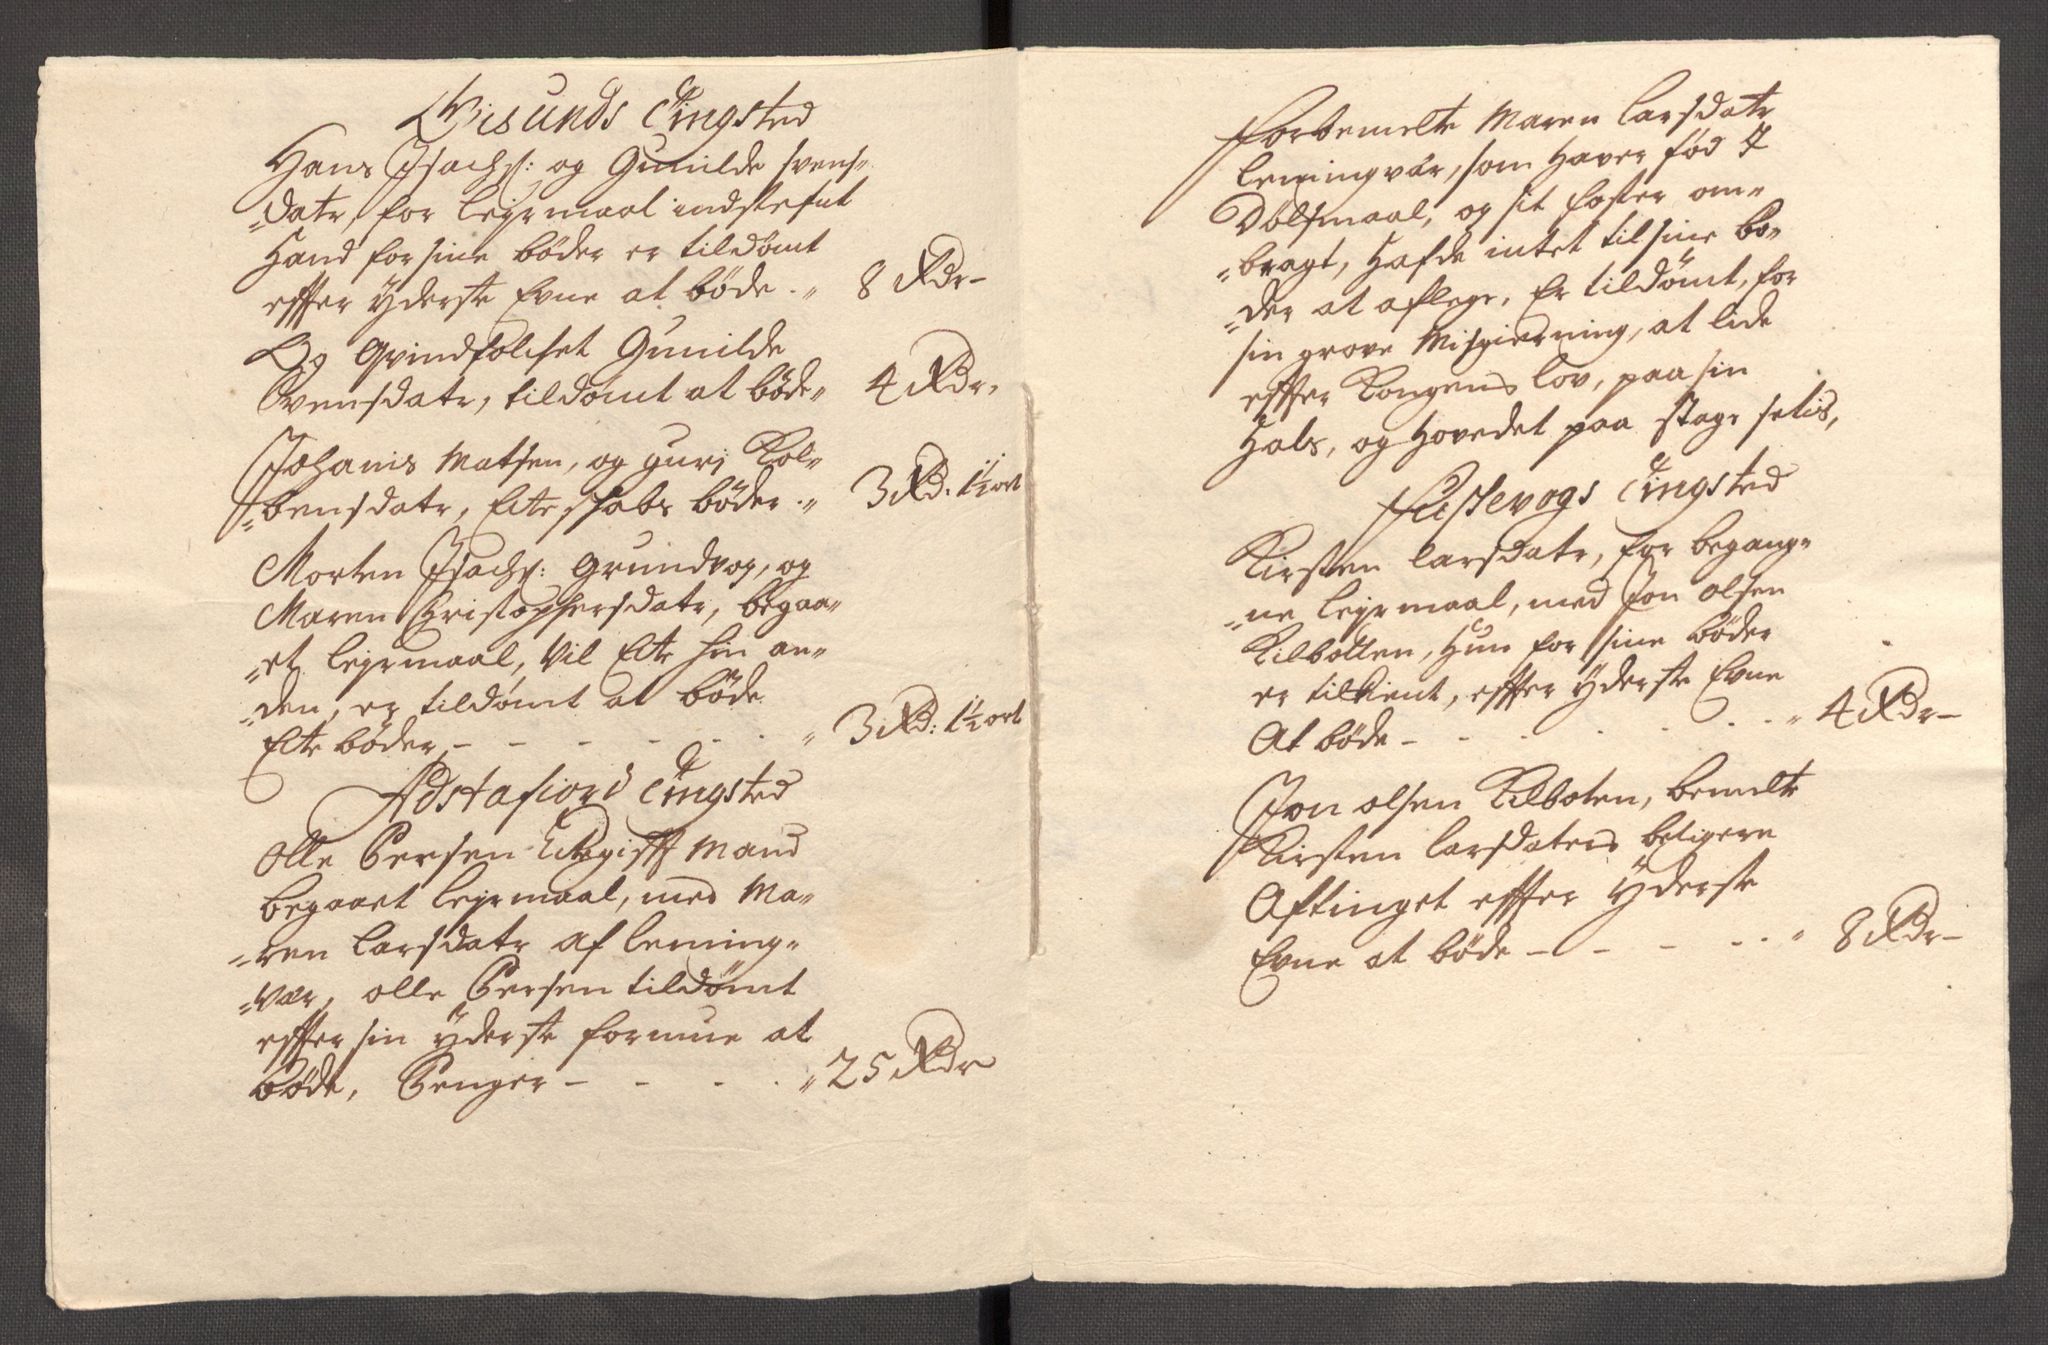 Gisunds Tingsted
Hans Isachs: og Gunilde Svens-
datr, for lejermaal indstefnt
Hand for sine bøder er tildømt
effter Yderste Evne at bøde .. 8 Rdr-
Og Qvindfolchet Gunilde
Svensdatr, tildømt at bøde 4 Rdr.
Johanis Matsen, og Guri Kol-
bensdatr, Ecteschabs bøder .. 3 Rd: 1½ ort
Morten Isachs: Grundvog, og
Maren Christophersdatr, begaa-
et lejermaal, vil Ecte hin an-
den, er tildømt at bøde
Ecte bøder - - - - - . . 3 Rd: 1½ ort
Astafiord Tingsted
Olle Persen Ectegifft Mand
begaaet lejermaal, med Ma-
ren Larsdatr af Leming-
vær, Olle Persen tildømt
effter sin Yderste formue at
bøde, Penger - - - . . 25 Rdr
Forbemelte Maren Larsdatr
Lemingvær, som Haver fød I
Dølsmaal, og sit foster om-
bragt, Hafde intet til sine bø-
der at aflege, Er tildømt, for
sin grove Misgierning, at lide
effter Kongens lov, paa sin
Hals, og Hovedet paa stage setis,
Fuskevogs Tingsted
Kirsten Larsdatr, for begang-
ne lejermaal, med Jon Olsen
Kilbotten, Hun for sine bøder
er tilkient, effter Yderste Evne
At bøde - - - . . . . 4 Rdr-
Jon Olsen Kilboten, bemelte
Kirsten Larsdaters beligere
Aftinget effter Yderste
Evne at bøde - - - - . . 8 Rdr-